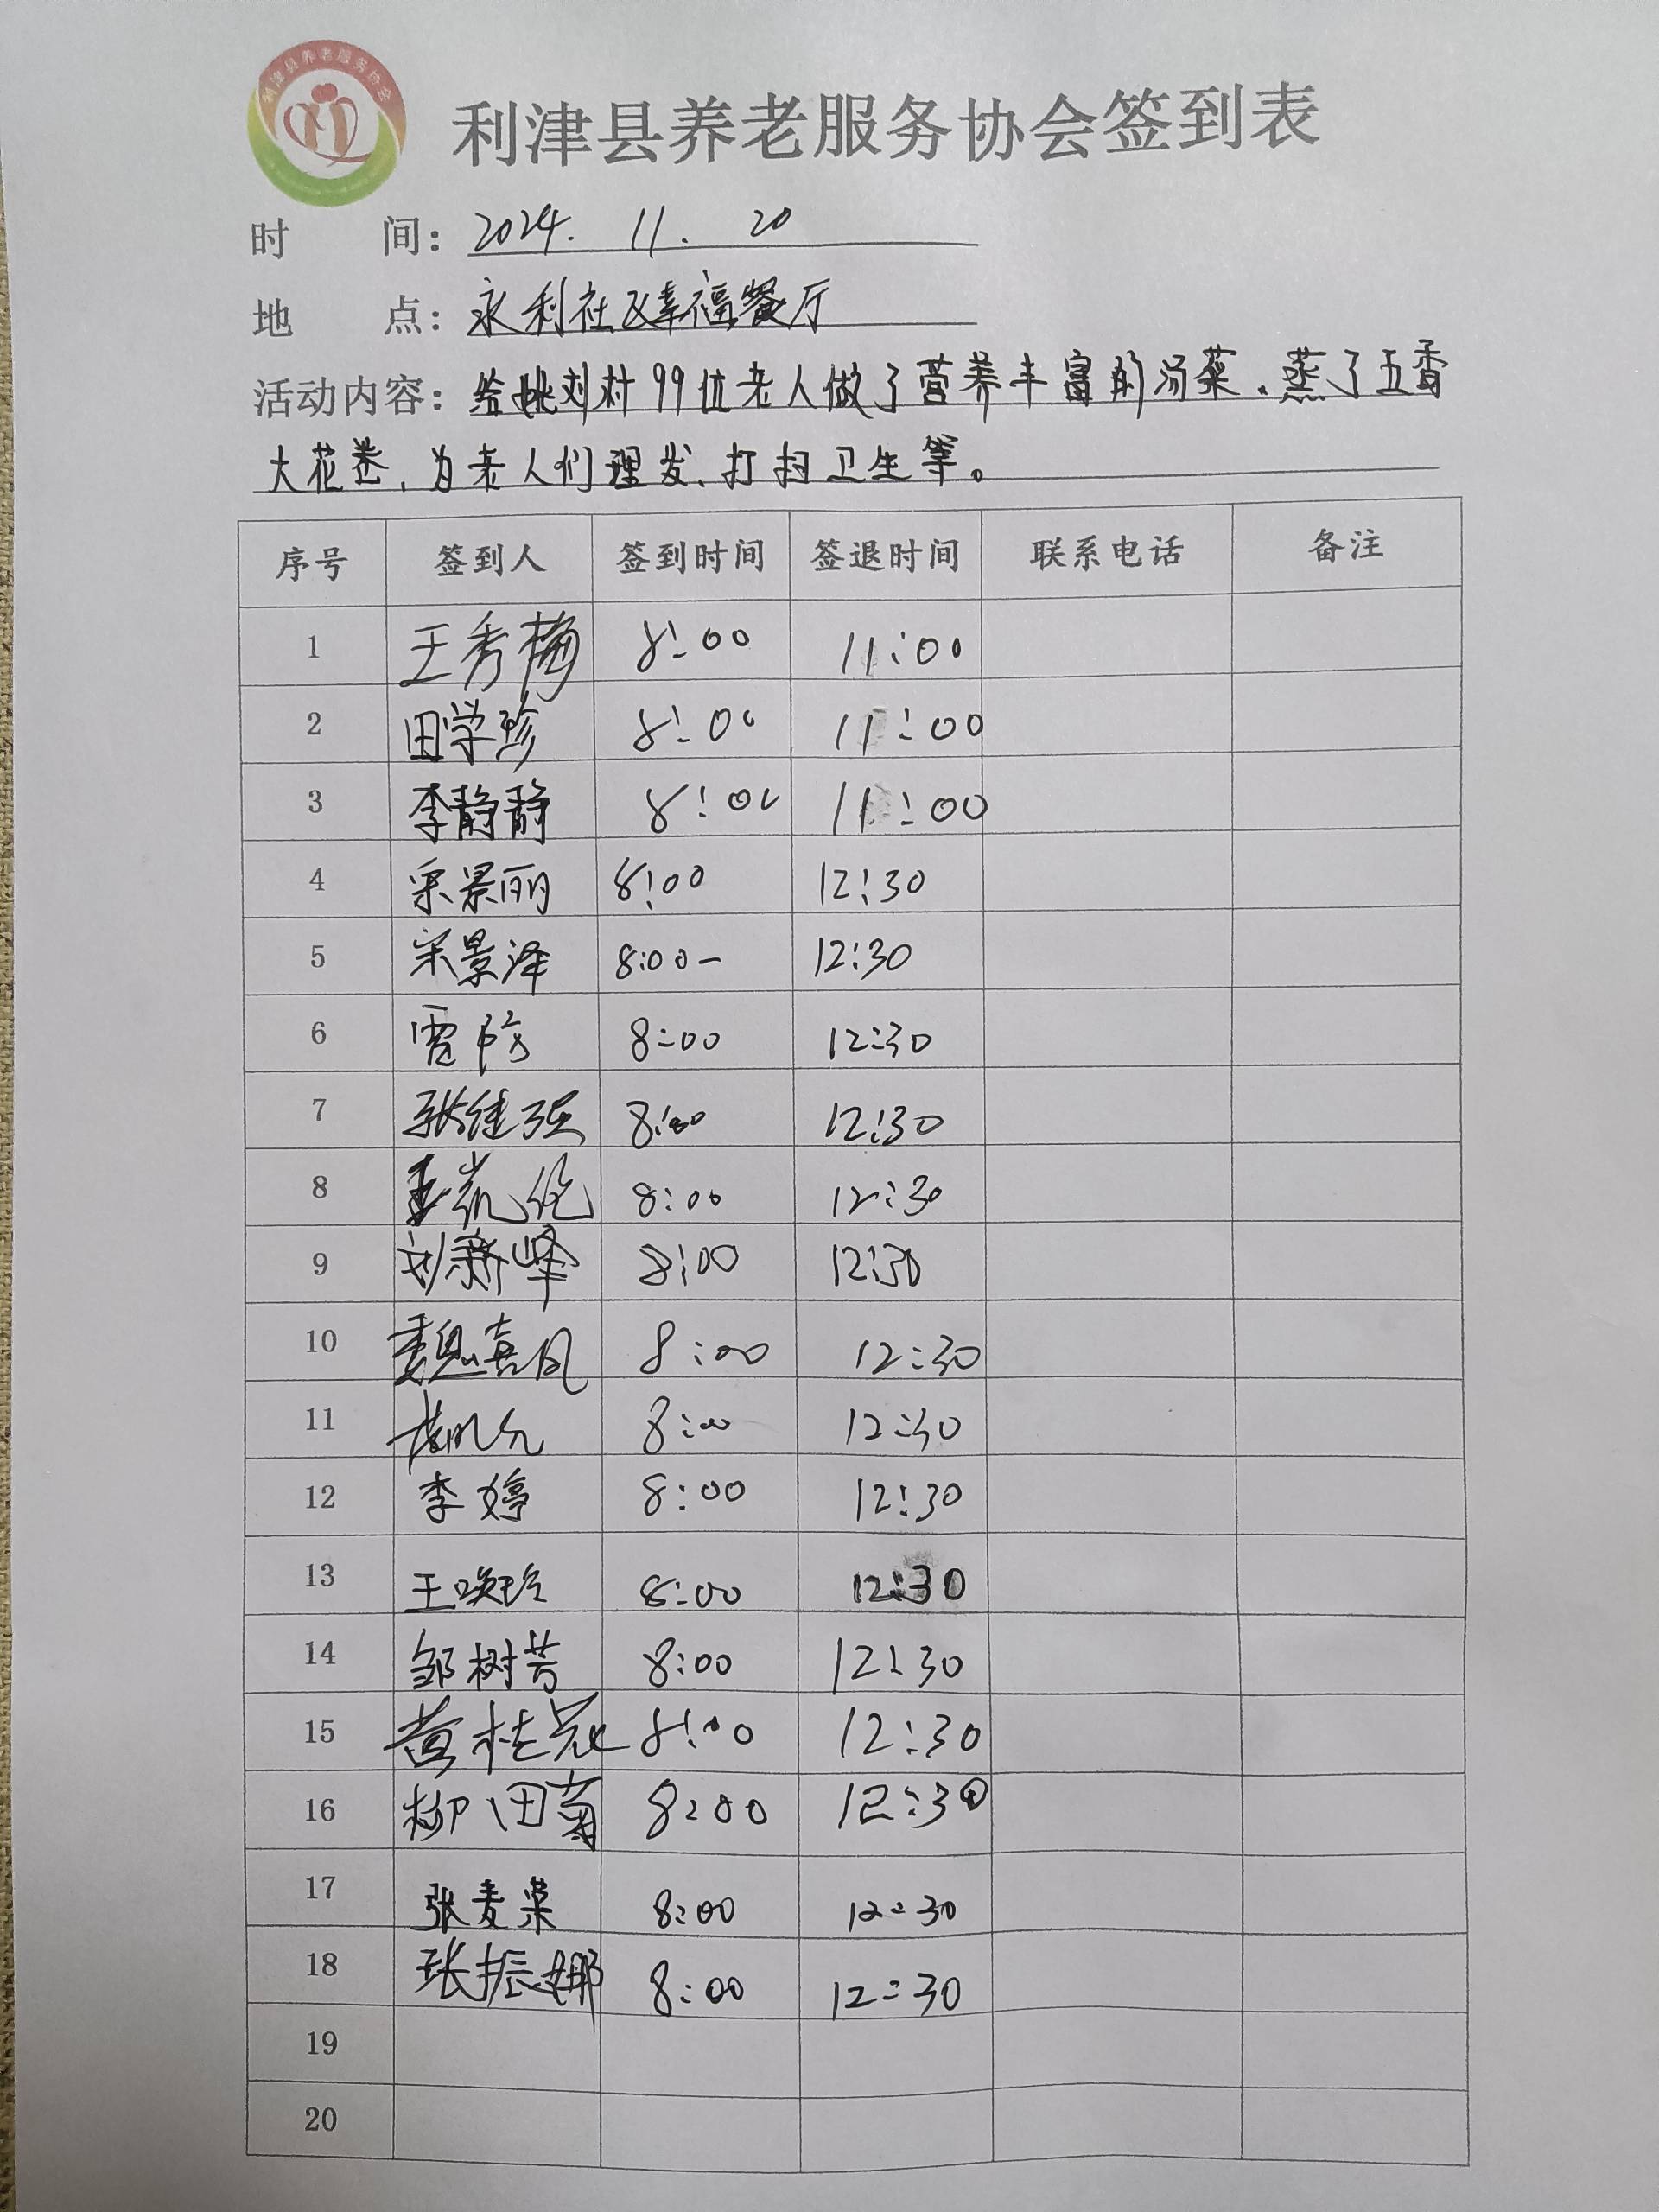 利津县养老服务协会
利津县养老服务协会签到表
时 间: 2024. 11. 20
地 点: 永利社区幸福餐厅
活动内容: 给姚刘村99位老人做了营养丰富的汤菜.蒸了五香
大花卷,为老人们理发、打扫卫生等。
序号 签到人 签到时间 签退时间 联系电话 备注
1 王秀梅 8:00 11:00
2 田学珍 8:00 11:00
3 李静静 8:00 11:00
4 宋景丽 8:00 12:30
5 宋景泽 8:00- 12:30
6 8:00 12:30
7 张继强 8:00 12:30
8 8:00 12:30
9 刘新峰 8:00 12:30
10 魏喜凤 8:00 12:30
11 8:00 12:30
12 李婷 8:00 12:30
13 王焕珍 8:00 12:30
14 邹树芳 8:00 12:30
15 黄桂冠 8:00 12:30
16 柳田菊 8:00 12:30
17 张麦菜 8:00 12:30
18 张振娜 8:00 12:30
19
20